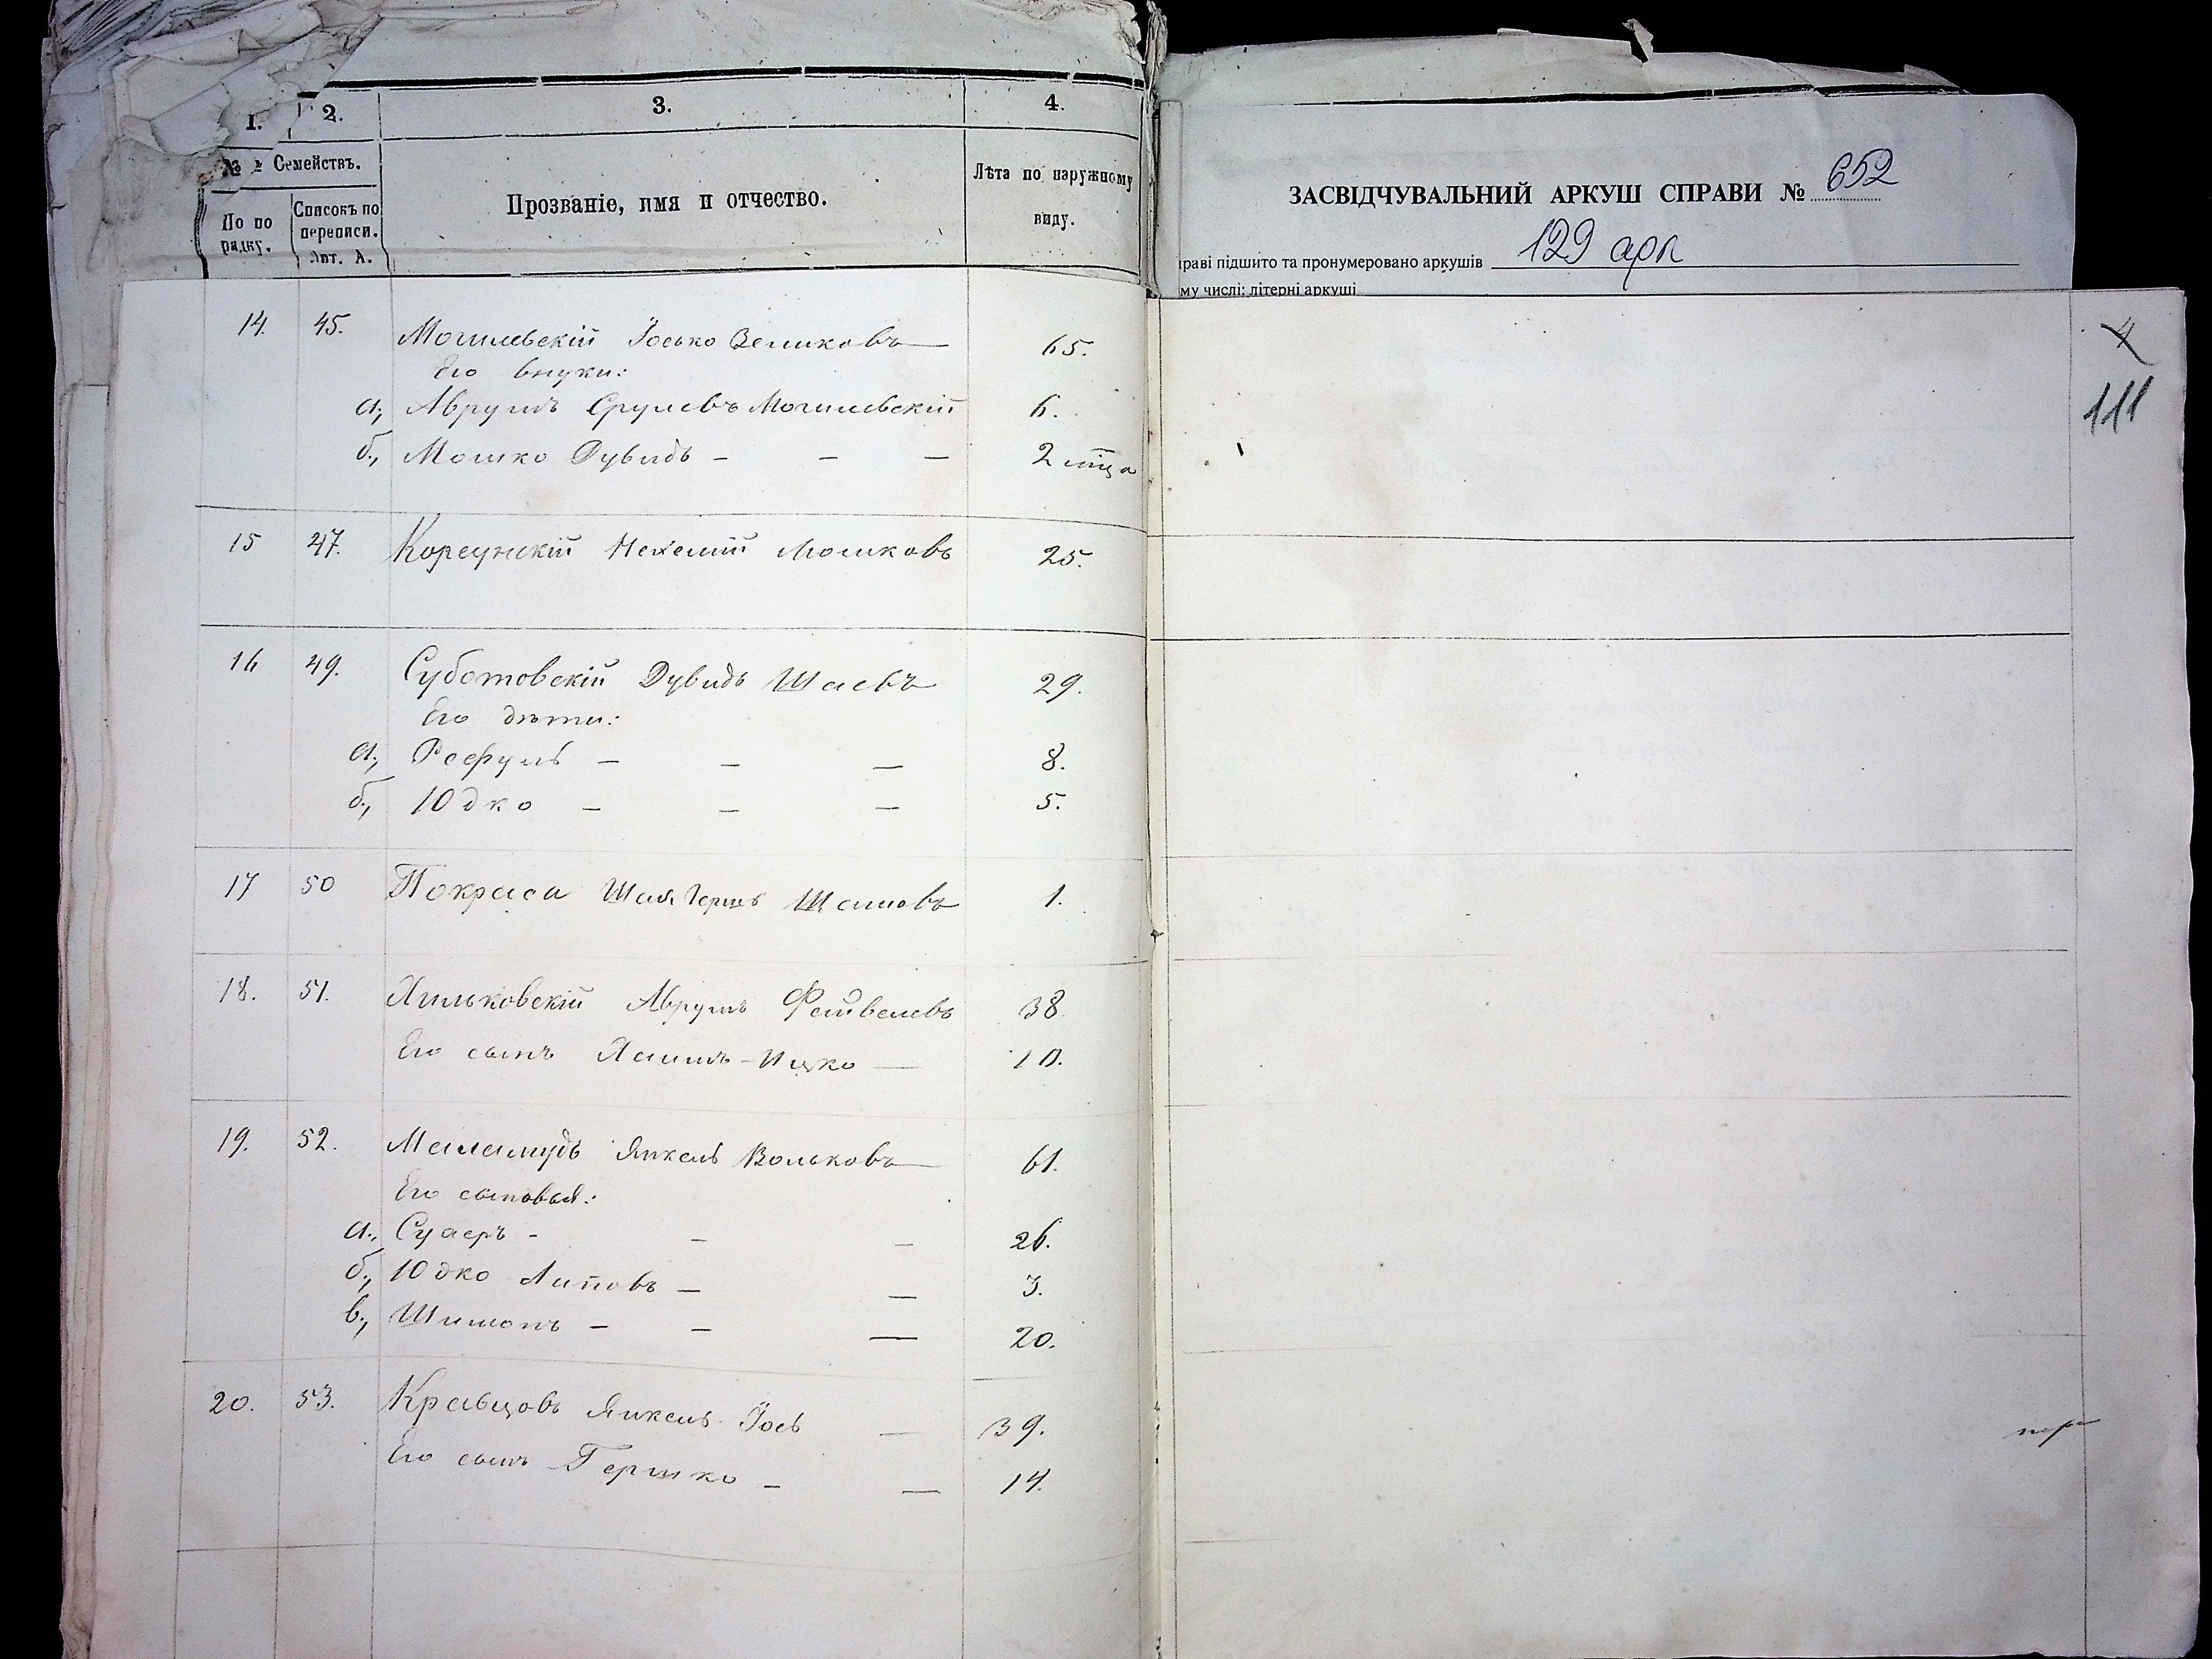 1. 2. 3. 4.
№ Семействъ.
По по
рядку.
Списокъ по
переписи.
Лит. А.
Прозваніе, имя и отчество.
Лѣта по наружному
виду.
ЗАСВІДЧУВАЛЬНИЙ АРКУШ СПРАВИ № 652
раві підшито та пронумеровано аркушів 129 арк
му числі: літерні аркуші
4
111
14. 45. Могилевскій Іосько Зеликовъ 65.
Его внуки:
а., Аврумъ Срулевъ Могилевскій 6.
б., Мошко Дувидъ - - - 2 мѣца
15 47. Корсунскій Нехемій Мошковъ 25.
16 49. Суботовскій Дувидъ Шаевъ 29.
Его дѣти:
а., Рефулъ - - - 8.
б., Юдко - - - 5.
17 50 Покраса Шая Гершъ Шаиовъ 1.
18. 51. Хильковскій Аврумъ Фейвелевъ 38
Его сынъ Хаимъ-Ицко — 10.
19. 52. Маламудъ Янкель Вольковъ 61.
Его сыновья:
а., Суаеръ - - - 26.
б., Юдко Липовъ - - 3.
в., Шимонъ - - - 20.
20. 53. Кравцовъ Янкель-Іось — 39.
Его сынъ Гершко - — 14.